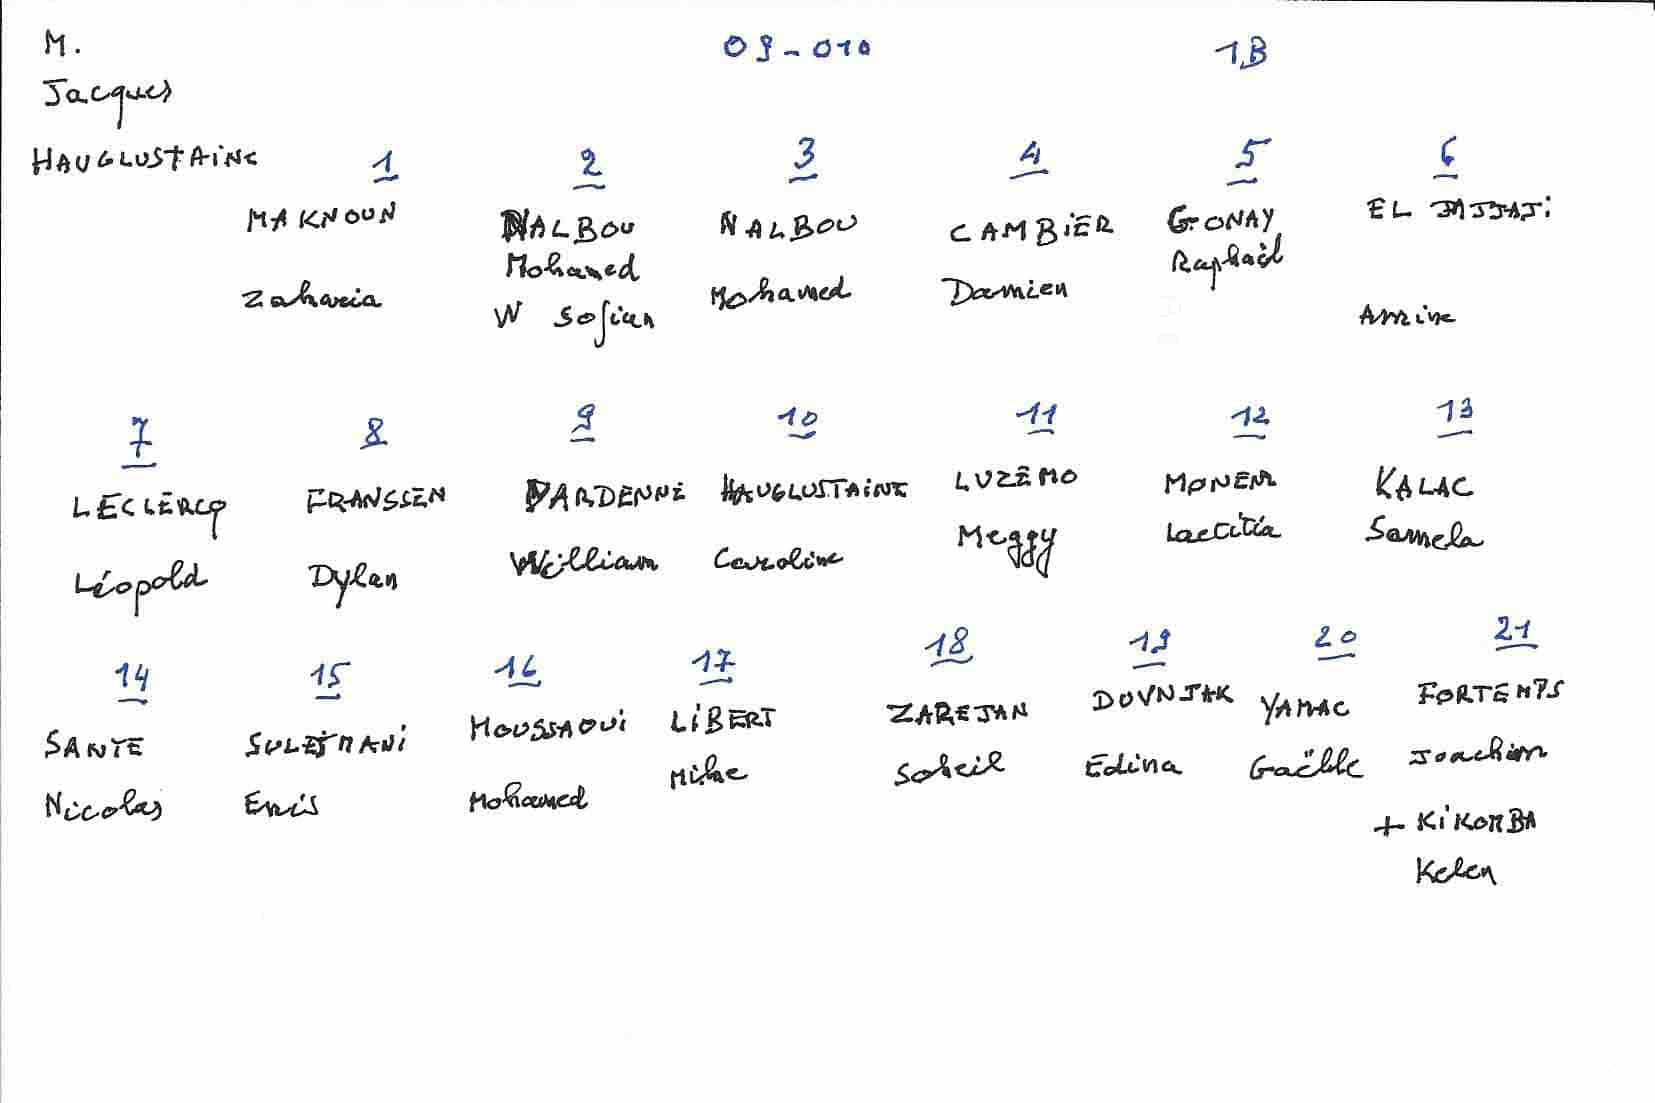 M. 09-010 1B
Jacques
HAUGLUSTAINE 1 2 3 4 5 6
MAKNOUN NALBOU NALBOU CAMBIER GONAY EL
Mohamed Raphaël
Zakaria W Sofian Mohamed Damien Amine
7 8 9 10 11 12 13
LECLERCQ FRANSSEN DARDENNE HAUGLUSTAINE LUZEMO MONEM KALAC
Léopold Dylan William Caroline Meggy Laetitia Samela
14 15 16 17 18 19 20 21
SANTE SULEJMANI MOUSSAOUI LIBERT ZAREJAN DOVNJAK YAMAC FORTEMPS
Nicolas Enis Mohamed Mike Soheil Edina Gaëlle Joachim
+ KIKOMBA
Kelen